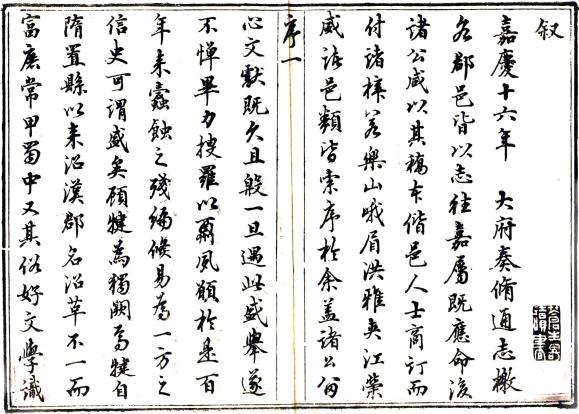 叙
嘉慶十六年　大府奏脩通志檄
各郡邑皆以志往嘉屬既應命後
諸公咸以其稿本偕邑人士商訂而
付諸梓若樂山峨眉洪雅夾江榮
威諸邑類皆索序於余蓋諸公留
序一
心文獻既久且殷一旦遇此盛舉遂
不憚畢力搜羅以爾風願於是百
年來蠹蝕之殘編倏易為一方之
信史可謂盛矣顧犍為獨闕焉犍自
隋置縣以来沿漢郡名沿革不一而
富庶常甲蜀中又其俗好文學識